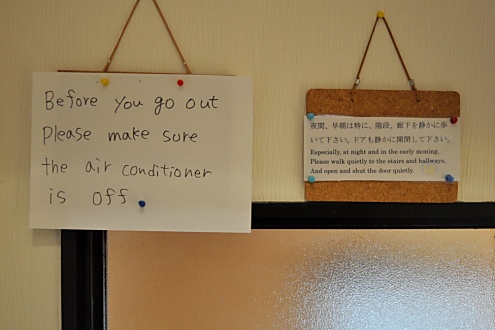 Before you go out
Please make sure
the air conditioner
is off.
夜間、早朝は特に、階段、廊下を静かに歩
いて下さい。ドアも静かに開閉して下さい。
Especially, at night and in the early moning.
Please walk quietly to the stairs and hallways,
And open and shut the door quietly.